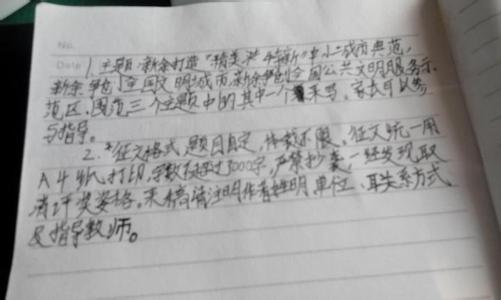 No.
Date 1.主题:新余打造"精美 特新"中小城市典范,
新余争创全国文明城市,新余争创全国公共文明服务示
范区,围范三个主题中的其中一个来写,家长可以参
与指导。
2.*征文格式 题目自定,体裁不限,征文统一用
A4纸打印,字数不超过3000字,严禁抄袭一经发现取
消评奖资格。来稿请注明作者姓明单位、联系方式,
及指导教师。